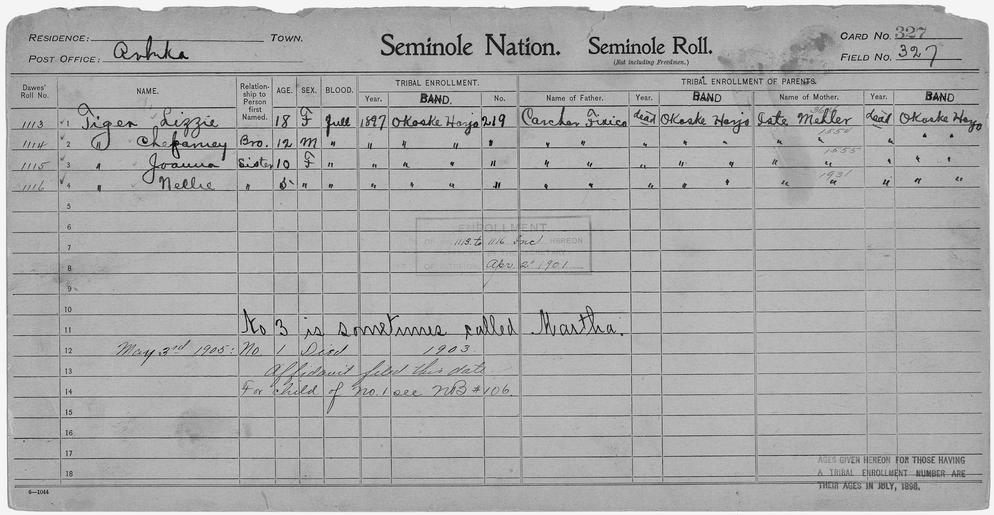 RESIDENCE: TOWN.
POST OFFICE:
Seminole Nation. Seminole Roll.
(Not including Freedmen.)
CARD NO. 327
FIELD NO. 327
Dawes' Roll No. NAME. Relationship to Person first Named. AGE. SEX. BLOOD. TRIBAL ENROLLMENT. TRIBAL ENROLLMENT OF PARENTS.
Year. BAND. No. Name of Father. Year. BAND Name of Mother. Year. BAND
1113 1 Tiger Lizzie 18 F Full 1897 Okoske Harjo 219 Fixico dead Okoske Harjo dead Okoske Harjo
1114 2 " Bro. 12 M " " " " " " " " " " " " " " "
1115 3 " Joanna Sister 10 F " " " " " " " " " " " " " " "
1116 4 " Nellie " 5 " " " " " " " " " " " " " " " "
5
6 ENROLLMENT
7 OF 1113 to 1116 Incl HEREON
8 Apr 2 1901
9
10
11 No 3 is sometimes called Martha.
12 May 3rd 1905: No. 1 Died 1903
13 Affidavit filed this date
14 For child of No. 1 see NB # 106.
15
16
17
18
AGES GIVEN HEREON FOR THOSE HAVING
A TRIBAL ENROLLMENT NUMBER ARE
THEIR AGES IN JULY, 1898.
6—1044